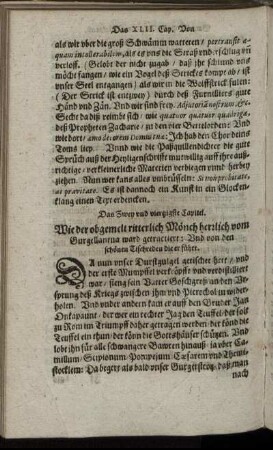 Das XLII. Cap. Von
als wir vber die groß Schwämm watteten / pertransisset a-
quam intollerabilem, als es vns die Straß vnd
verloff. (Gelobt der nicht zugab / daß ihr schlund vns
möcht fangen / wie ein Vogel deß Strickes kompt ab / ist
vnser Seel entgangen) als wir in die Wolffstrick fielen:
(Der Strick ist entzwey) durch deß Furnilliers gute
Händ vnd Zän. Vnd wir sind frey.
Secht da deß reimbt sich / wie quatuor quatuor
deß Propheten Zacharie / zu den vier Vierteldoren: Vnd
wie dort / Ich hab den Chor deins
Tons lieb. Vnnd wie die Paßquillendichter die gute
Sprüch auß der Heyligenschrifft mutwillig auff ihre auff-
richtige / verkleinerliche Materien herbiegen vnnd herbey
ziehen. Nun wer kans alles
Es ist dannoch ein Kunst in ein Glocken-
klang einen Text erdencken.
Das Zwey vnd viertzigste Capitel.
Wie der obgemelt ritterlich Mönch herrlich vom
Gurgellantua ward getractiert: Vnd von den
schönen Tischreden die er führt.
DA nun vnser Durstgurgel
der erste Mumpffel verköpfft vnd verdistilliert
war / fieng sein Vatter Goschgroß an den Vr-
sprung deß Kriegs zwischen ihm vnd Picrochol zu wider-
holen. Vnd vnder andern kam er auff den Bruder Jan
Onkapaunt / der wer ein rechter Jag den Teuffel / der solt
zu Rom im Triumpff daher getragen werden: der könd die
Teuffel ein thun / der könn die Gottshäuser schützen. Vnd
lobt ihn für alle schwangere Bawren hinauß / ja vber Ca-
millum / Scipionem / Pompejum / Cæsarem vnd Themi-
stoclem: Da begert als bald vnser Gurgelstroß / daß man
nach